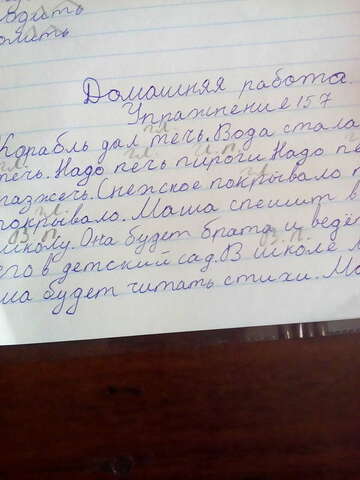 Домашняя работа.
Упражнение 157
Корабль дал течь. Вода стала
течь. Надо печь пироги. Надо пе
разжечь. Снежское покрывало п
покрывало. Маша спешит в
В.п. В.п.
школу. Она будет брата и ведёт
его в детский сад. В школе М
ша будет читать стихи. Ма